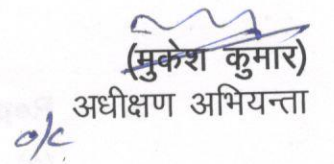 (मुकेश कुमार)
अधीक्षण अभियन्ता
o/c